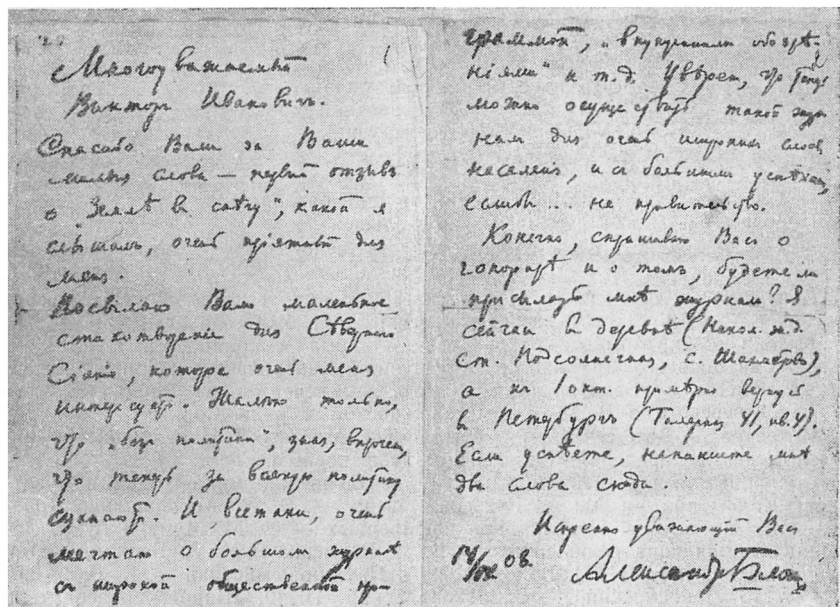 Многоуважаемый
Викторъ Ивановичъ.
Спасибо Вамъ за Ваши
милыя слова — первый отзывъ
о „Землѣ въ снѣгу“, какой я
слышалъ, очень прiятный для
меня.
Посылаю Вамъ маленькое
стихотворенiе для Сѣвернаго
Сiянiя, которое очень меня
интересуетъ. Жалѣю только,
что „безъ политики“, зная, впрочемъ,
что теперь за всякую политику
И, всетаки, очень
мечтаю о большомъ журналѣ
съ широкой общественной про-
граммой, „внутренними обозрѣ-
нiями“ и т.д. Увѣренъ, что теперь
можно осуществить такой жур-
налъ для очень широкихъ слоевъ
населенiя, и съ большимъ успѣхомъ,
еслибы... не правительство.
Конечно, спрашиваю Васъ о
гонорарѣ и о томъ, будете ли
присылать мнѣ журналъ? Я
сейчасъ въ деревнѣ (Никол. ж.д.
ст. Подсолнечная, с. Шахматово),
а къ 1 окт. примѣрно вернусь
въ Петербургъ (Галерная 41, кв. 4).
Если успѣете, напишите мнѣ
два слова сюда.
Искренно уважающiй Васъ
08. Александръ Блокъ